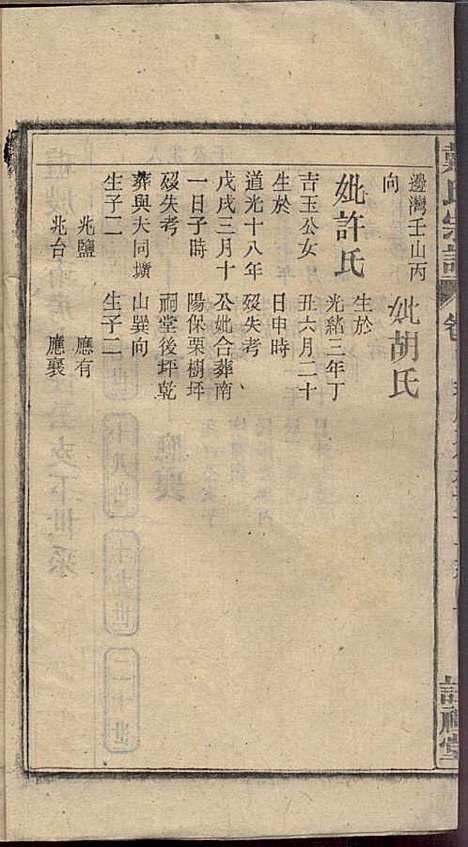 戴氏宗譜
卷
註禮堂
邊灣壬山丙
向
妣許氏
吉玉公女
生於
道光十八年
戊戌三月十
一日子時
歿失考
葬與夫同壙
生子二
兆鹽
兆台
妣胡氏
生於
光緒三年丁
丑六月二十
日申時
歿失考
公妣合葬南
陽保栗樹坪
祠堂後坪乾
山巽向
生子二
應有
應襄